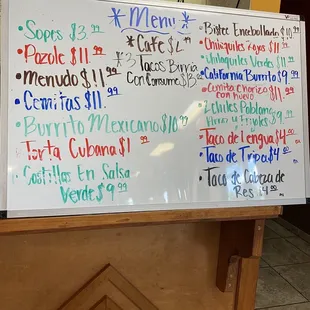 *Menu*
•Sopes $3.99
•Pozole $11.99
•Menudo $11.99
•Cemitas $11.99
•Burrito Mexicano $10.99
Torta Cubana $1
•Costillas En Salsa
Verde $9.99
*Cafe $2.99
*3 Tacos Birria
Con Consume $13
•Bistec Encebollado
•Chilaquiles rojos $11.99
•Chilaquiles Verdes $11
•California Burrito $9.99
•Cemita Chorizo $11.99
con huevo
•2 chiles Poblano
Arroz y Frijoles $9.99
•Taco de lengua $4.00
•Taco de Tripa $4.00
•Taco de Cabeza de
Res $4.00